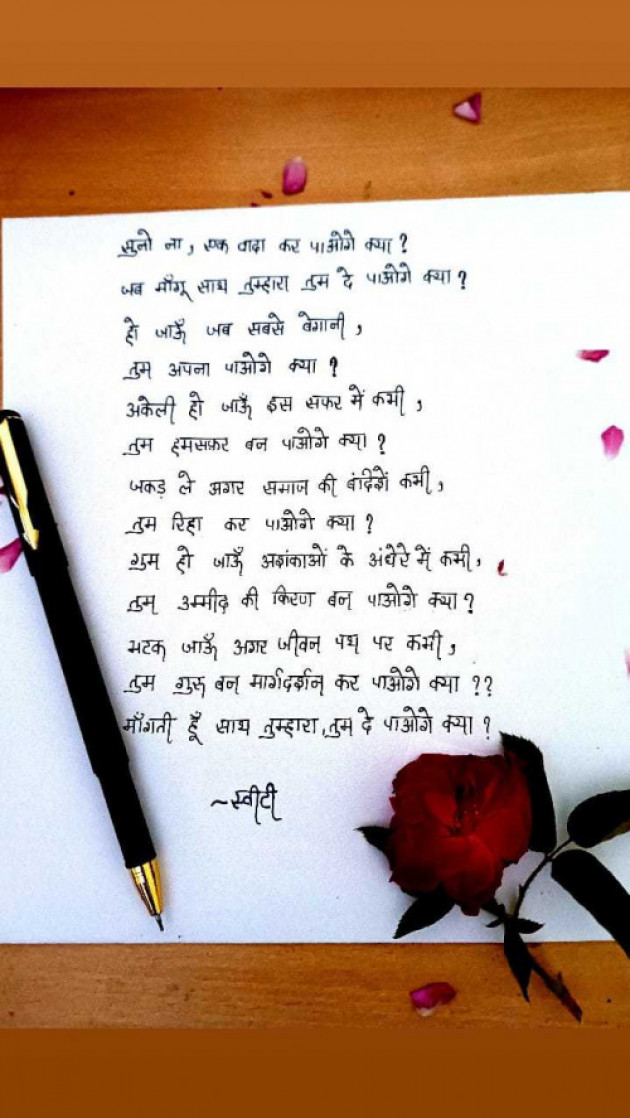 सुनो ना, एक वादा कर पाओगे क्या?
जब माँगू साथ तुम्हारा तुम दे पाओगे क्या?
हो जाऊँ जब सबसे बेगानी,
तुम अपना पाओगे क्या?
अकेली हो जाऊँ इस सफर में कभी,
तुम हमसफ़र बन पाओगे क्या?
जकड़ ले अगर समाज की बंदिशें कभी,
तुम रिहा कर पाओगे क्या?
गुम हो जाऊँ अशंकाओं के अंधेरे में कभी,
तुम उम्मीद की किरण बन पाओगे क्या?
भटक जाऊँ अगर जीवन पथ पर कभी,
तुम गुरु बन मार्गदर्शन कर पाओगे क्या??
माँगती हूँ साथ तुम्हारा, तुम दे पाओगे क्या?
~स्वीटी